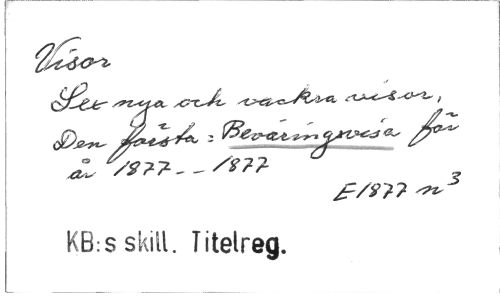 Visor
Sex nya och vackra visor,
Den första: Beväringsvisa för
år 1877 -- 1877
E 1877 n 3
KB:s skill. Titelreg.